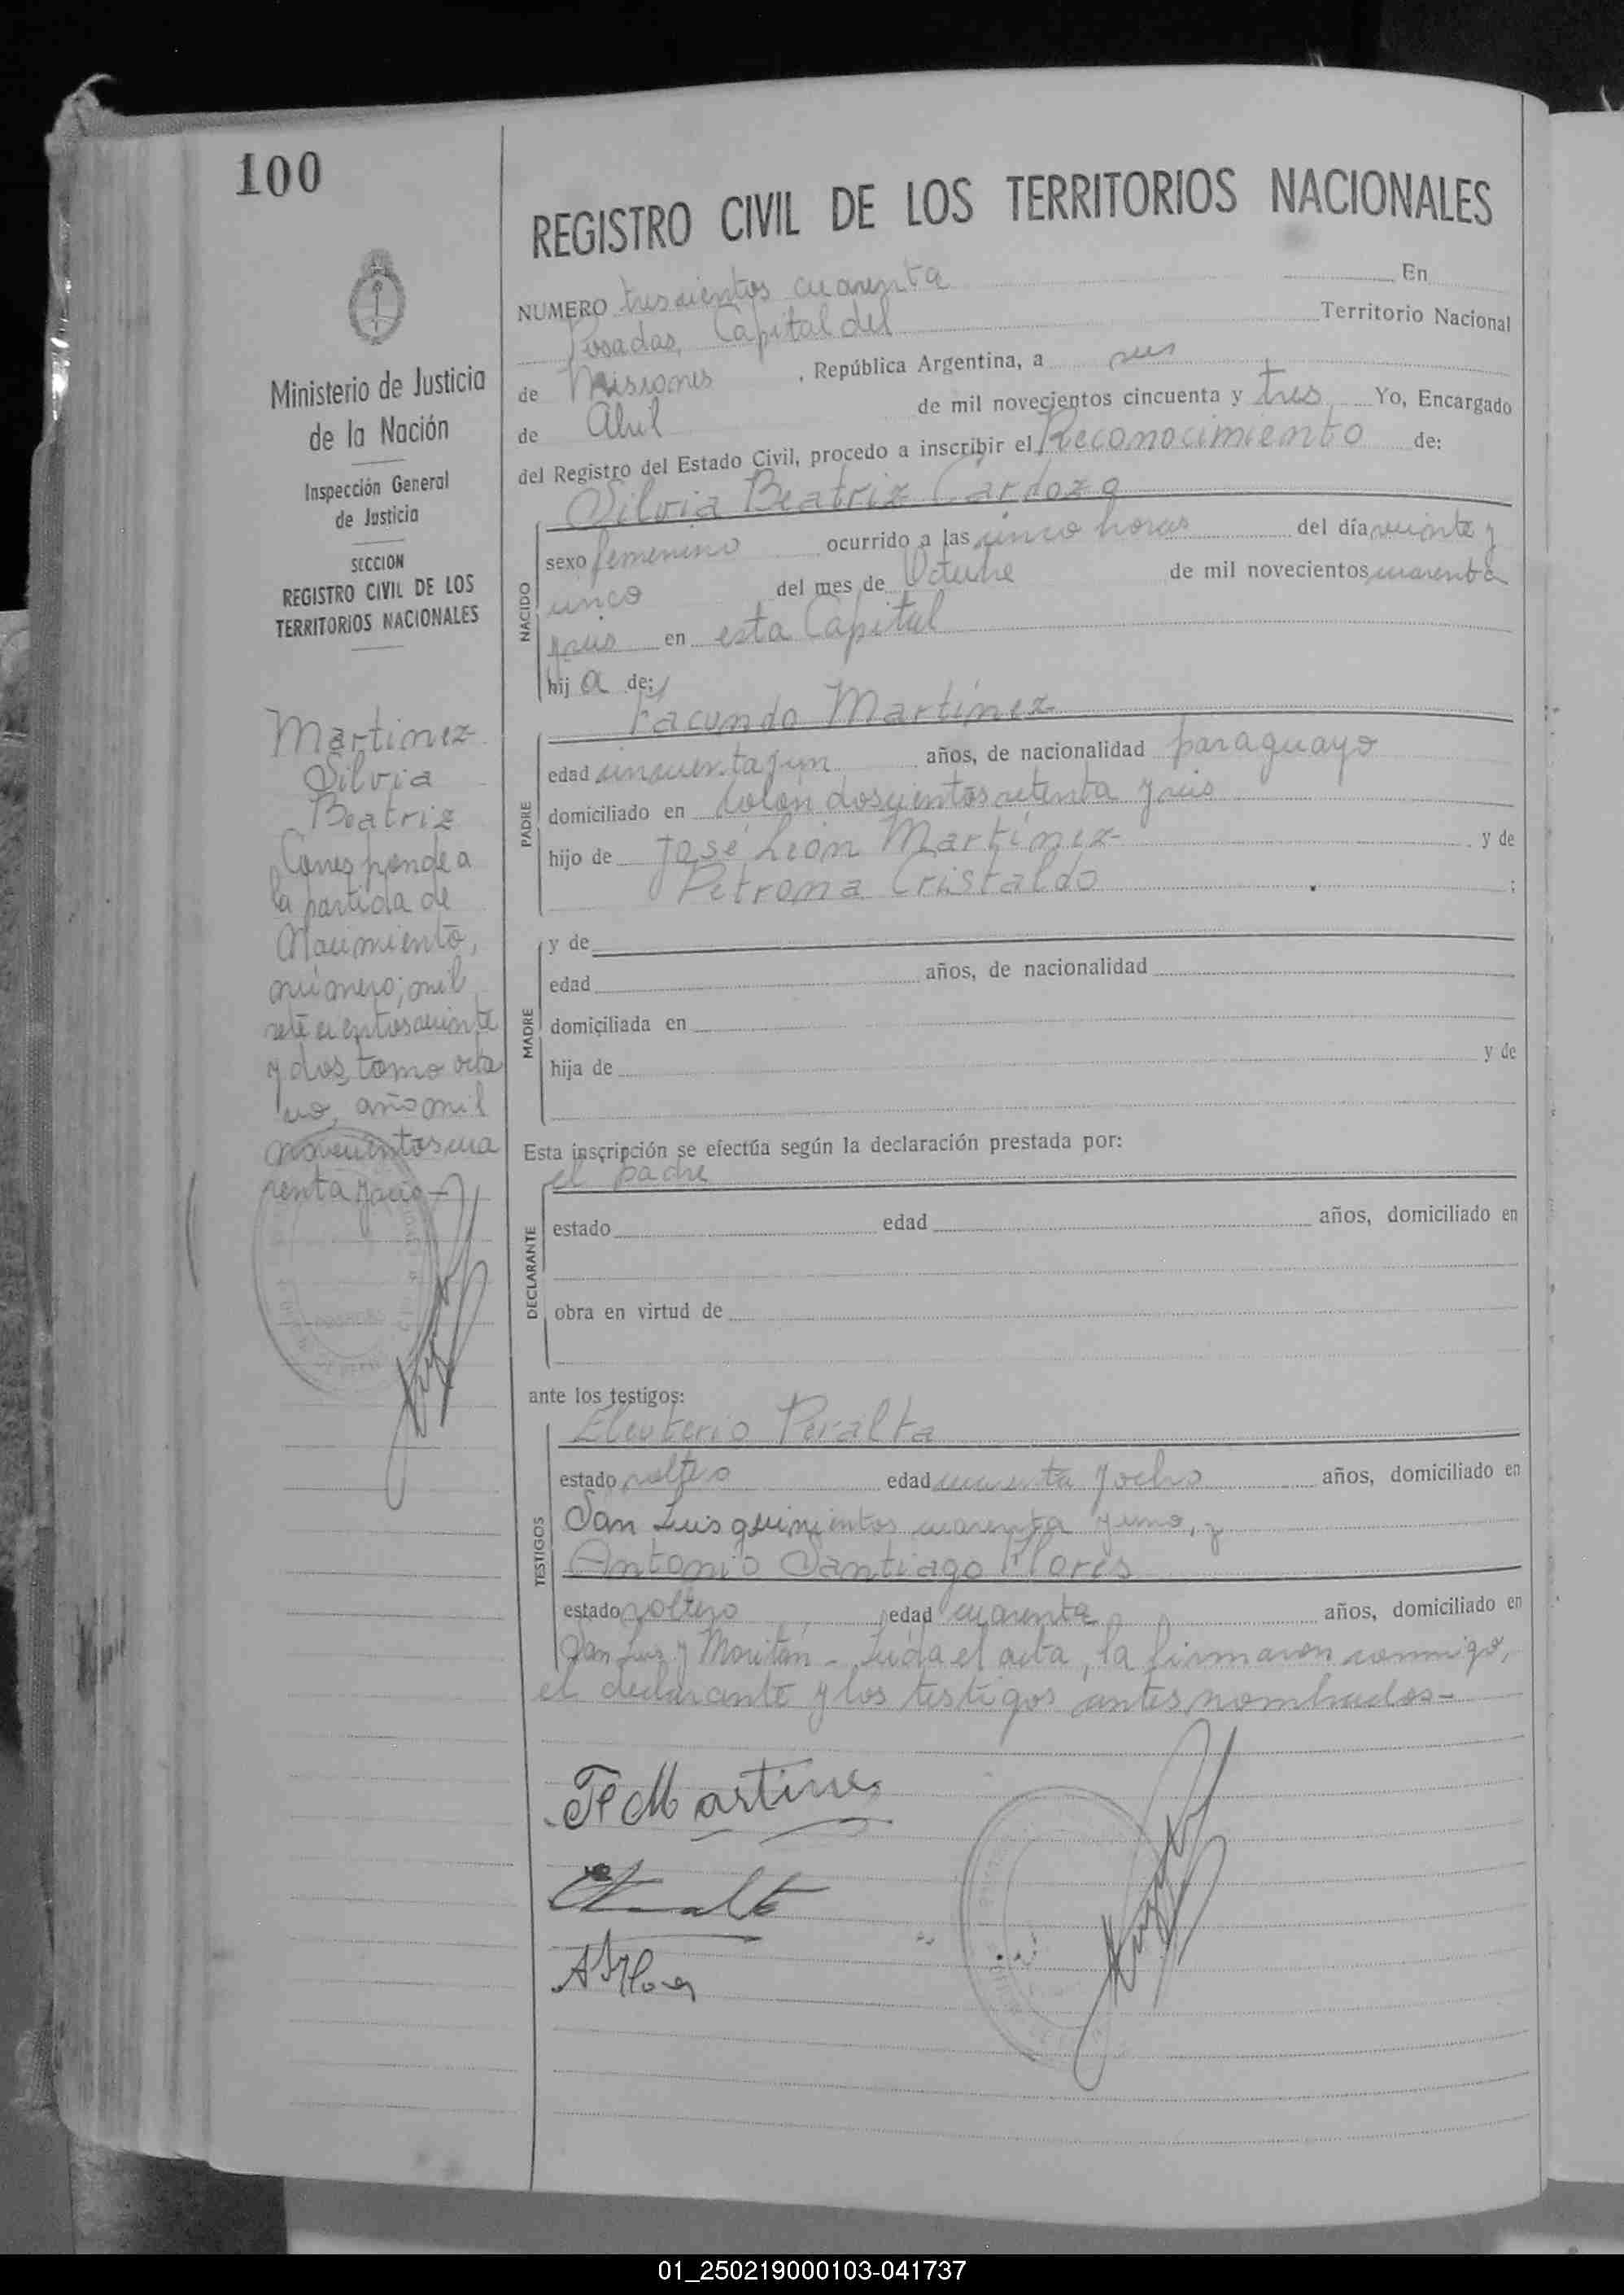 100
REGISTRO CIVIL DE LOS TERRITORIOS NACIONALES
NUMERO trescientos cuarenta En
Posadas, Capital del Territorio Nacional
de Misiones , República Argentina, a seis
de Abril de mil novecientos cincuenta y tres Yo, Encargado
del Registro del Estado Civil, procedo a inscribir el Reconocimiento de:
Silvia Beatriz Cardozo
NACIDO
sexo femenino ocurrido a las cinco horas del día veinte y
cinco del mes de Octubre de mil novecientos cuarenta
y seis en esta Capital
hij a de:
Facundo Martínez
PADRE
edad cincuenta y un años, de nacionalidad paraguayo
domiciliado en Colón doscientos setenta y seis
hijo de José León Martínez y de
Petrona Cristaldo ;
MADRE
y de
edad años, de nacionalidad
domiciliada en
hija de y de
Esta inscripción se efectúa según la declaración prestada por:
el padre
DECLARANTE
estado edad años, domiciliado en
obra en virtud de
ante los testigos:
Eleuterio Peralta
TESTIGOS
estado soltero edad cuarenta y ocho años, domiciliado en
San Luis quinientos cuarenta y uno, y
Antonio Santiago Flores
estado soltero edad cuarenta años, domiciliado en
San Luis y Moritán - Leída el acta, la firmaron conmigo,
el declarante y los testigos antes nombrados-
F Martinez
A S Flores
Ministerio de Justicia
de la Nación
Inspección General
de Justicia
SECCION
REGISTRO CIVIL DE LOS
TERRITORIOS NACIONALES
Martinez
Silvia
Beatriz
Corresponde a
la partida de
Nacimiento,
número; mil
setecientos veinte
y dos, tomo octa
vo, año mil
novecientos cua
renta y seis-
01_250219000103-041737